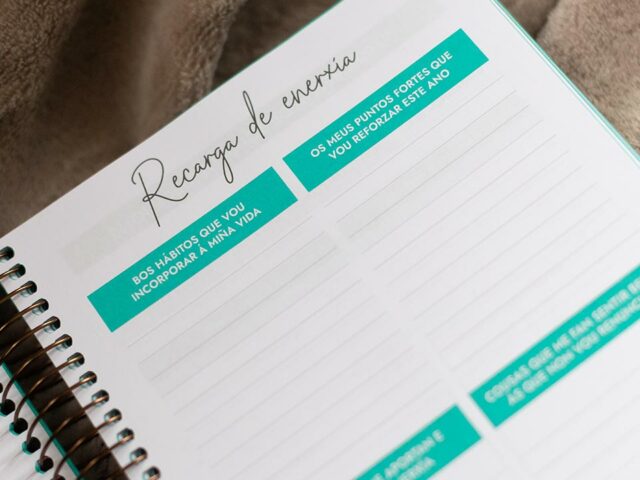 Recarga de enerxía
BOS HÁBITOS QUE VOU
INCORPORAR Á MIÑA VIDA
OS MEUS PUNTOS FORTES QUE
VOU REFORZAR ESTE ANO
COUSAS QUE ME FAN SENTIR
AS QUE NON VOU
APORTAN E